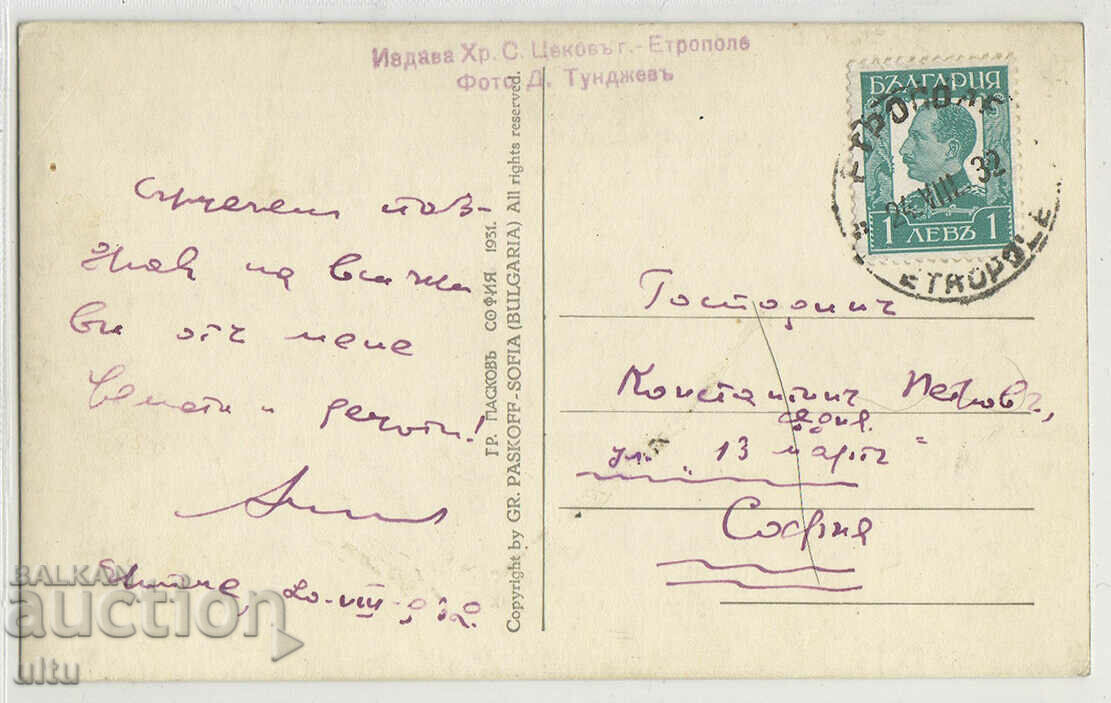 Издава Хр. С. Цековъ г.- Етрополе
Фото Д. Тунджевъ
БЪЛГАРИЯ
ЕТРОПОЛЕ
VIII. 32
1 ЛЕВЪ 1
ETROPOLE
Сърдечен поз-
на всички
ви отъ мене
и децата!
20-VIII-932
ГР. ПАСКОВЪ СОФИЯ 1931.
Copyright by GR. PASKOFF-SOFIA (BULGARIA) All rights reserved.
Господинъ
Константинъ Петковъ,
ул. "13 мартъ"
София
BALKAN
auction
ultu